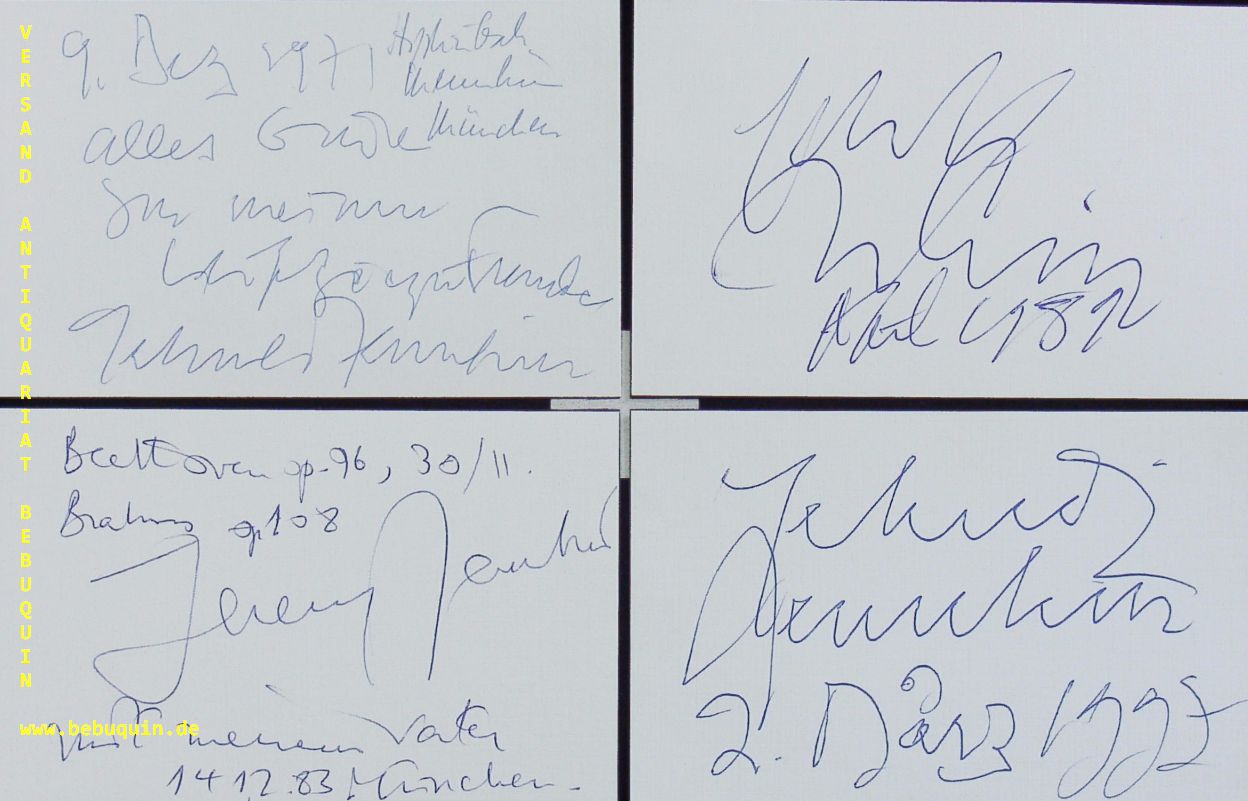 9. Dez 1971
München
alles Gute
meinen
Yehudi Menuhin
Yehudi
Menuhin
April 1982
Beethoven op. 96, 30/II.
Brahms op 108
Jeremy Menuhin
mit meinem Vater
14 12.83 München.
Yehudi
Menuhin
2. März 1997
VERSAND ANTIQUARIAT BEBUQUIN
www.bebuquin.de